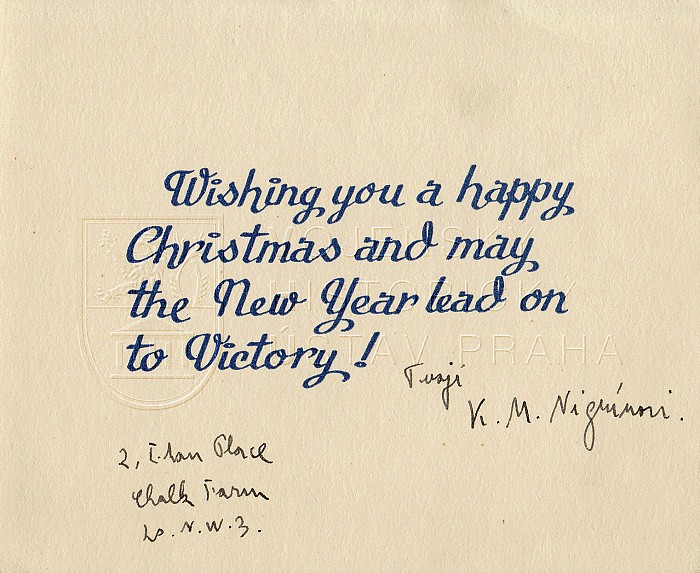 Wishing you a happy
Christmas and may
the New Year lead on
to Victory!
Tvoji
K. M. Nigrínovi.
2, Eton Place
Chalk Farm
Lo. N.W.3.
VOJENSKÝ
HISTORICKÝ
ÚSTAV PRAHA